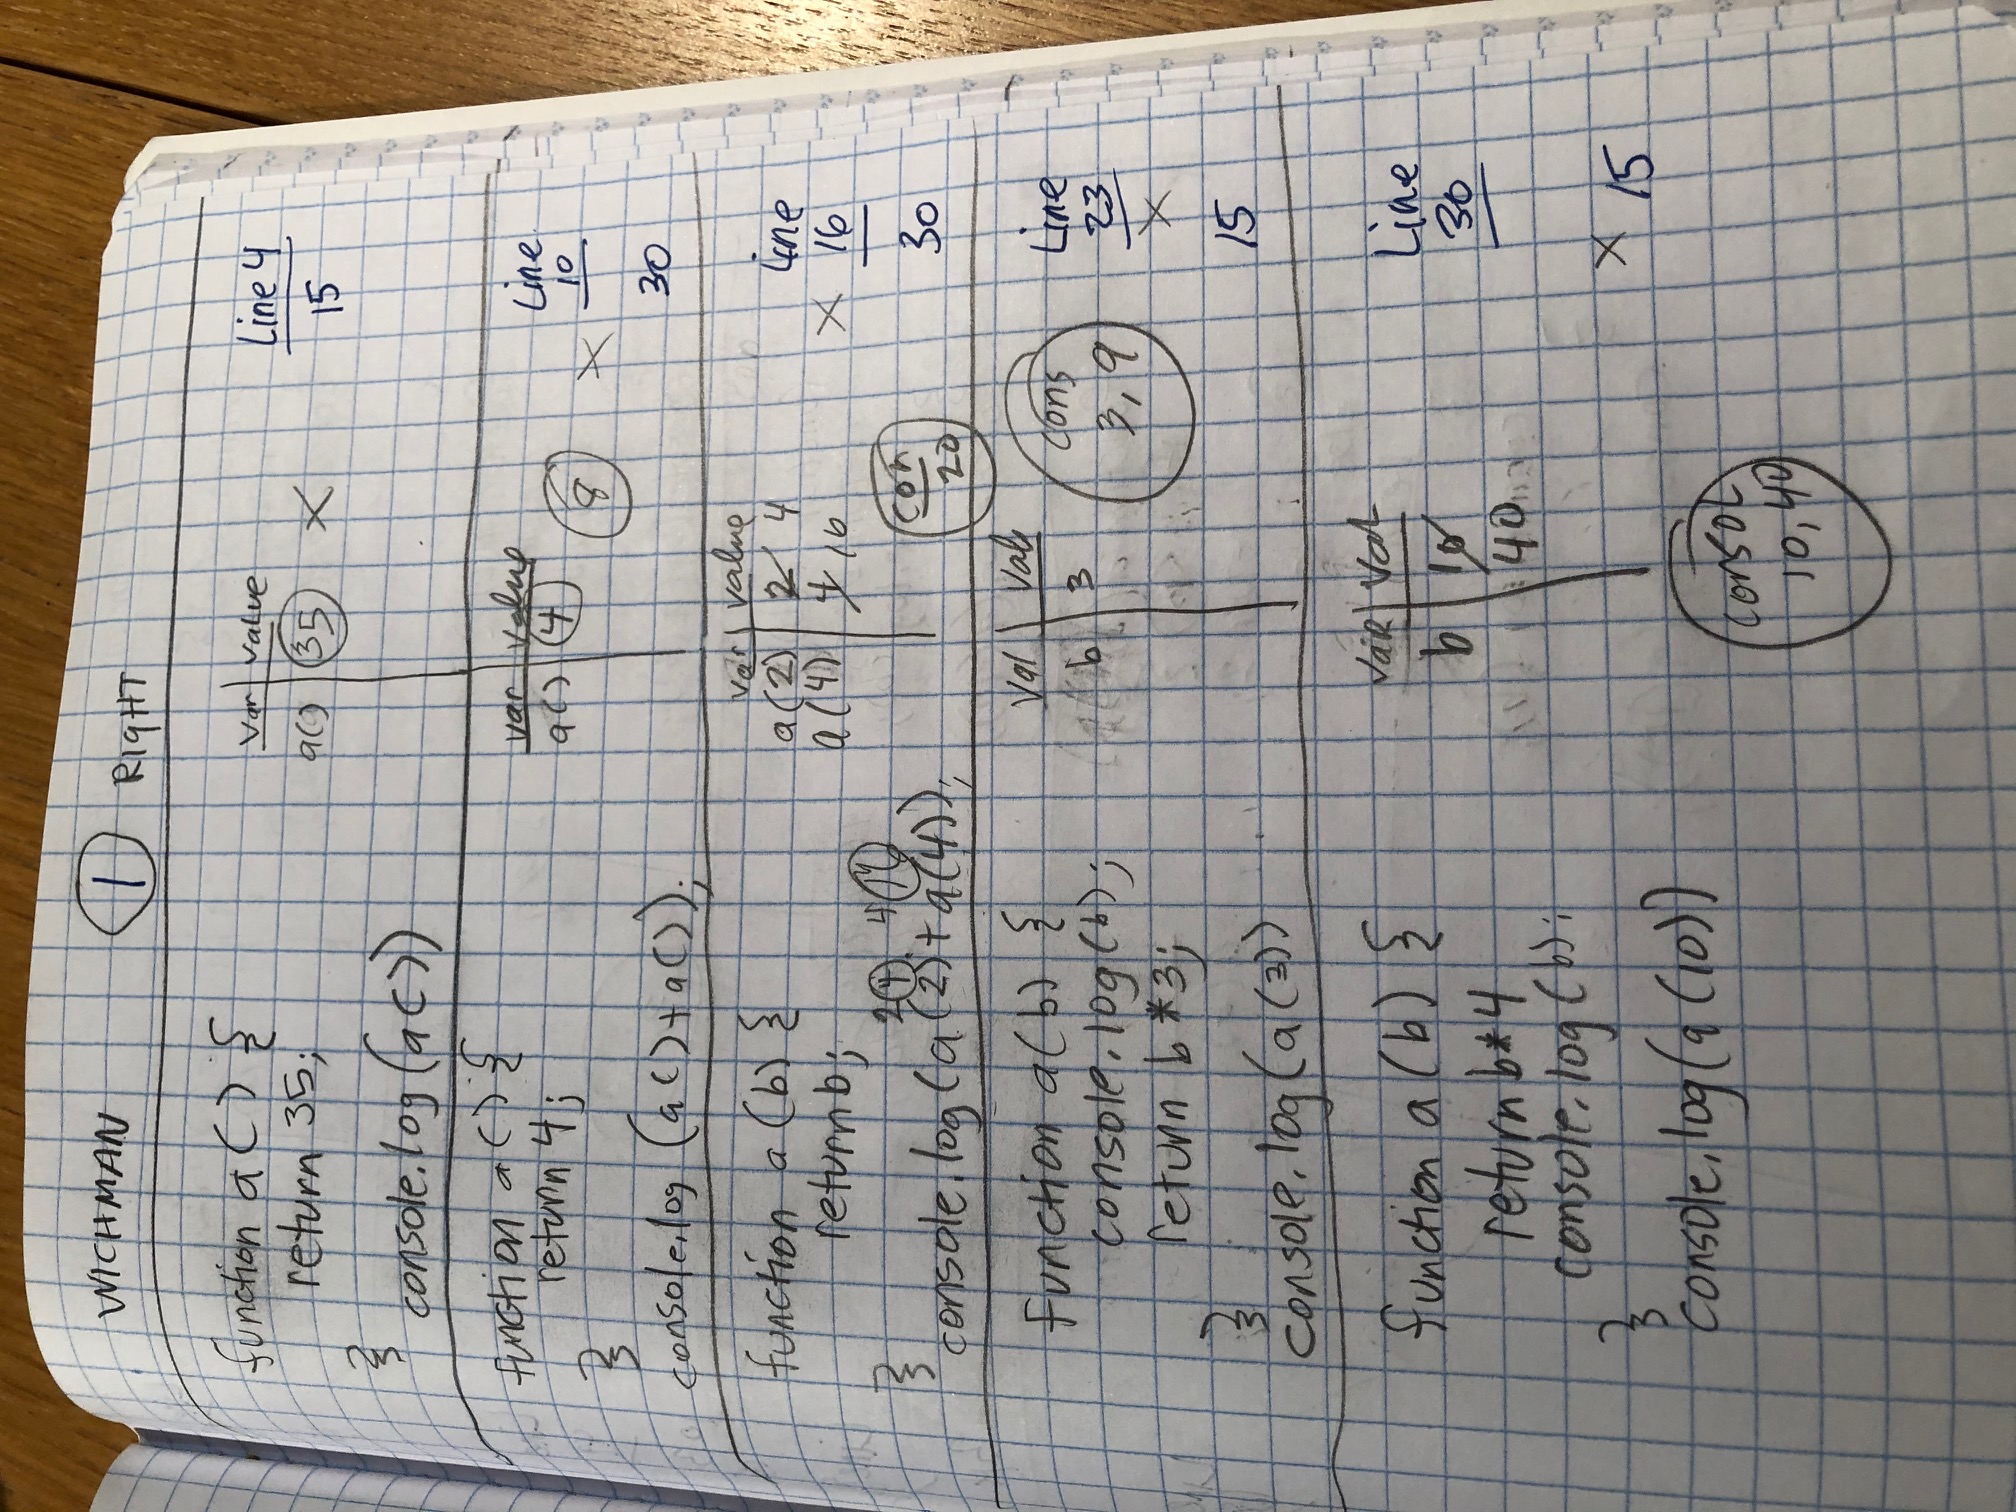 WICHMAN 1 RIGHT
function a() {
return 35;
}
console.log(a())
var value
a() 35 X
Line 4
15
function a() {
return 4;
}
console.log(a()+a());
var value
a() 4
8
X
Line
10
30
function a(b) {
return b;
}
2 4 4 16
console.log(a(2)+a(4));
var value
a(2) 2 4
a(4) 4 16
con
20
X
Line
16
30
function a(b) {
console.log(b);
return b*3;
}
console.log(a(3))
Val Val
b 3
cons
3, 9
Line
23
X
15
function a(b) {
return b*4
console.log(b);
}
console.log(a(10))
VAR Val
b 10
40
consol
10, 40
Line
30
X 15